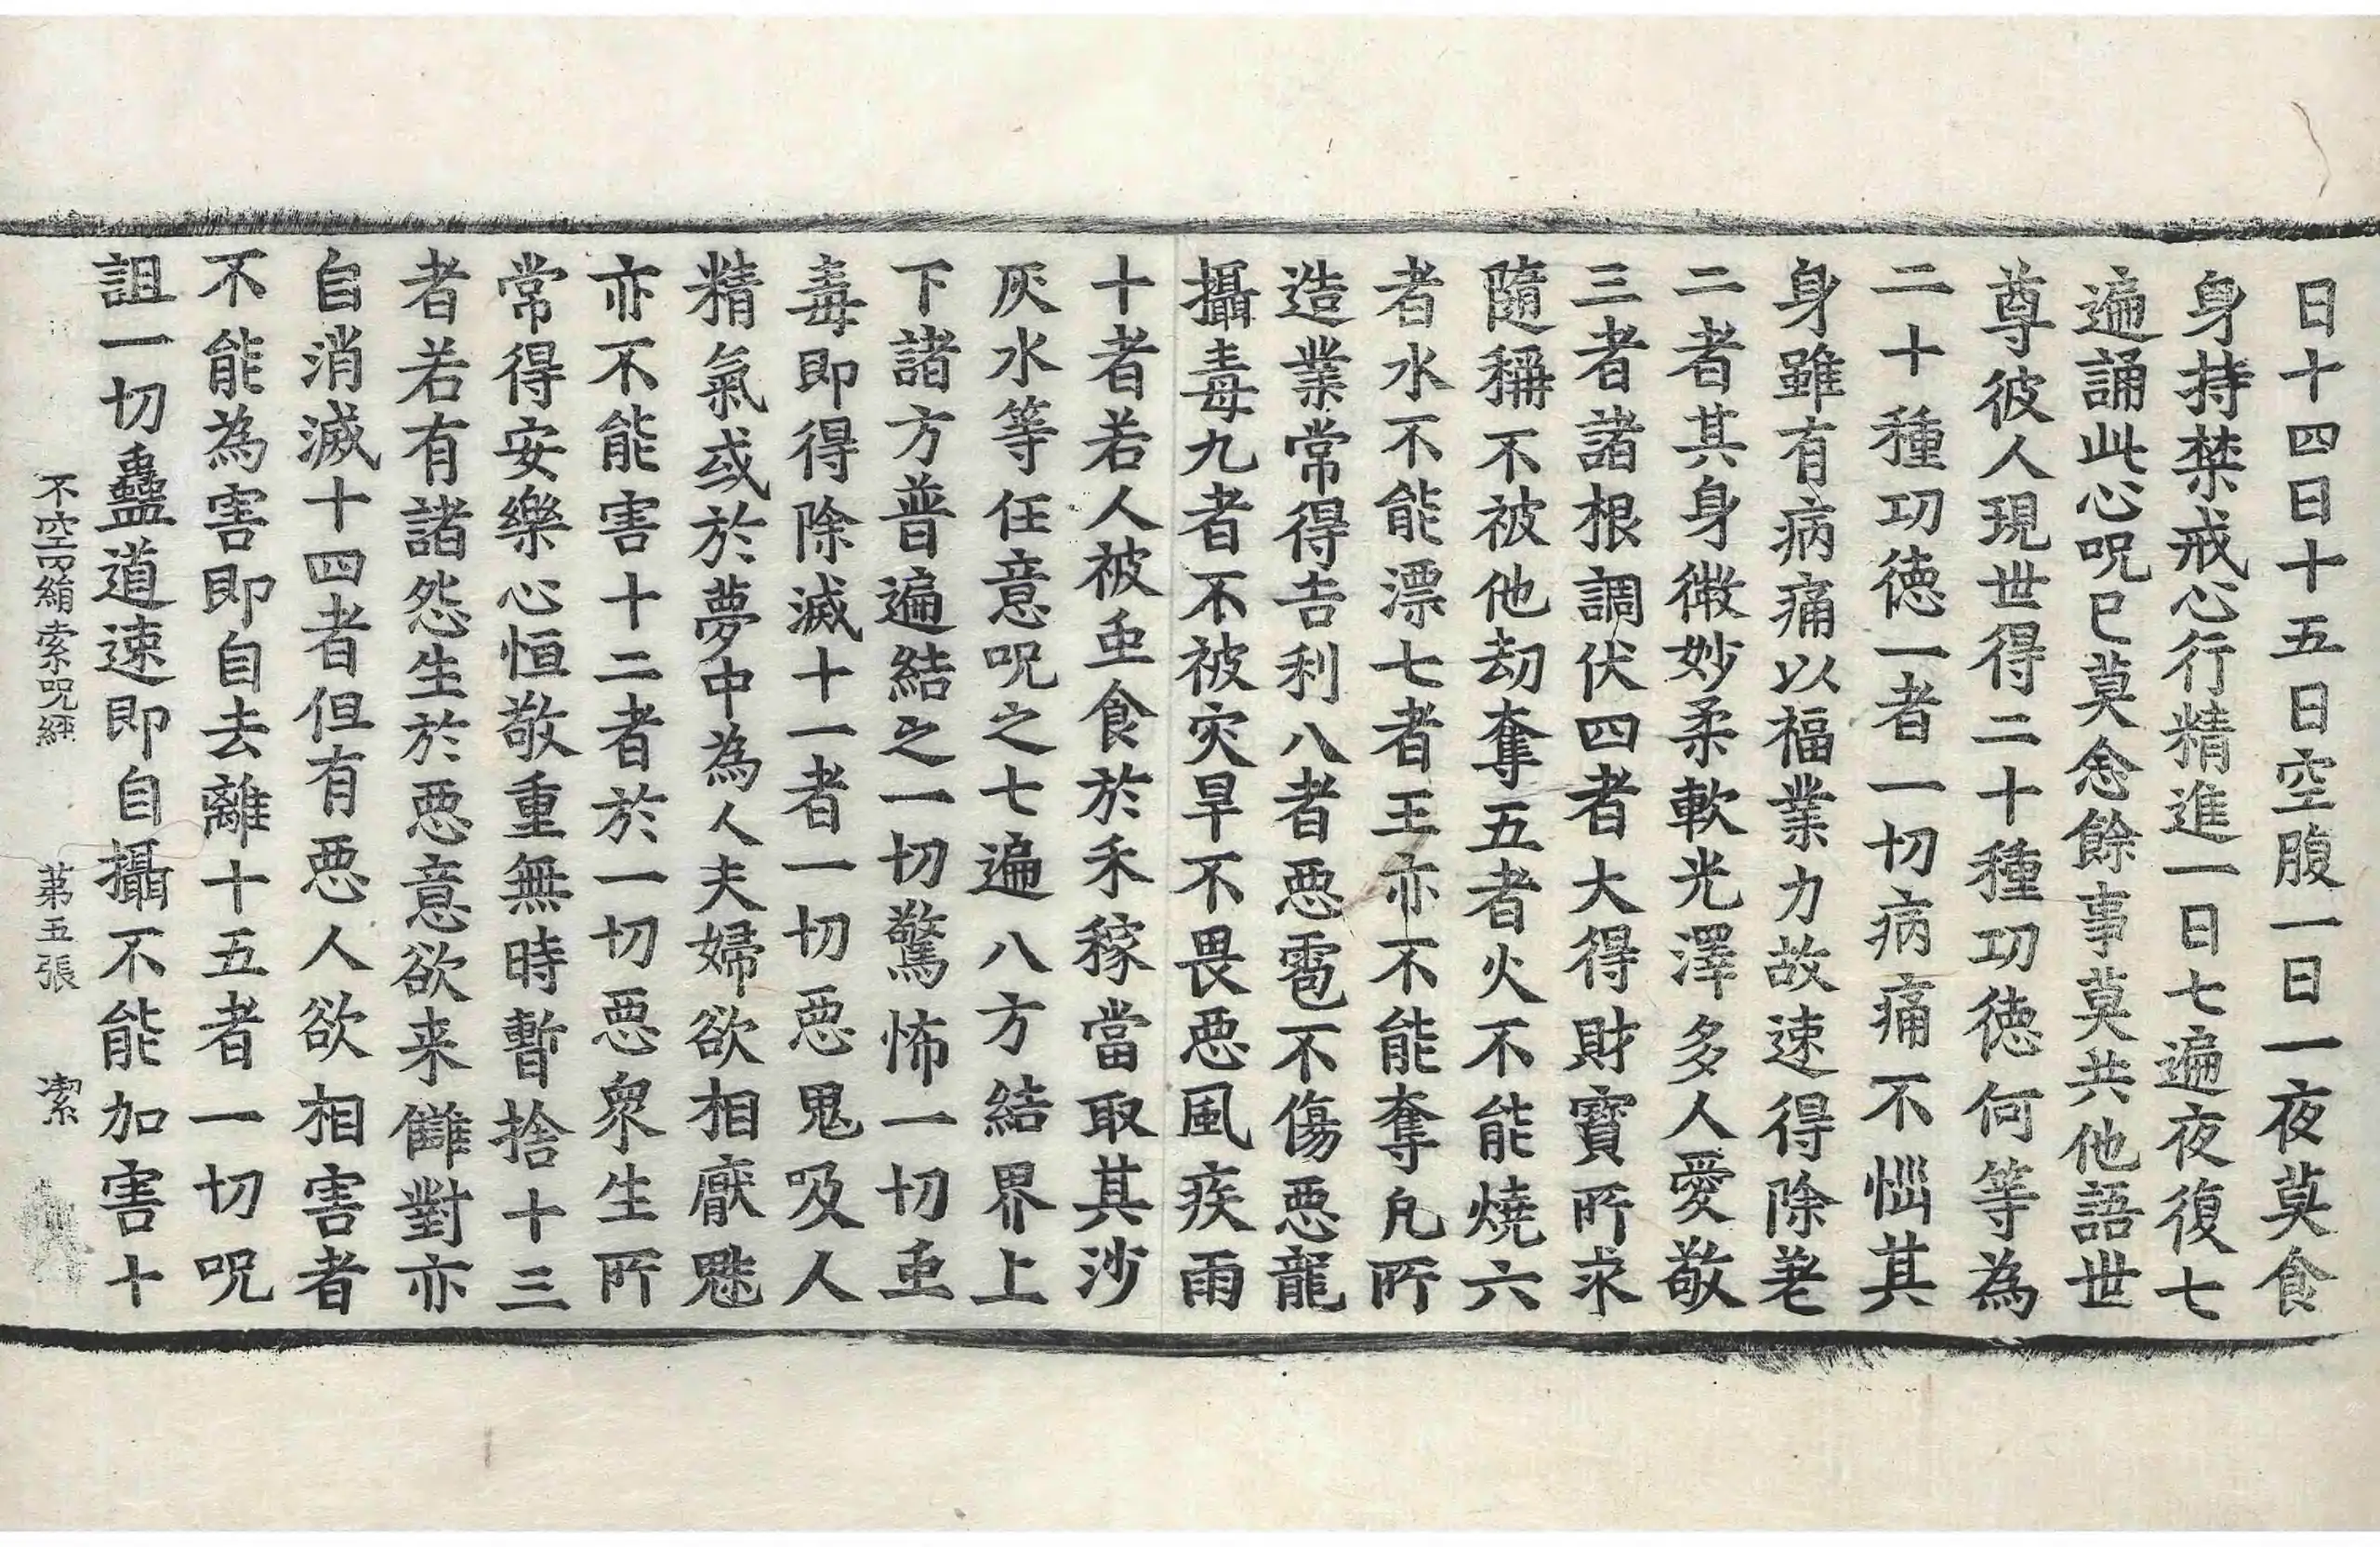 日十四日十五日空腹一日一夜莫食
身持禁戒心行精進一日七遍夜復七
遍誦此心呪已莫念餘事莫共他語世
尊彼人現世得二十種功徳何等為
二十種功徳一者一切病痛不惱其
身雖有病痛以福業力故速得除差
二者其身微妙柔軟光澤多人愛敬
三者諸根調伏四者大得財寶所求
隨稱不被他劫奪五者火不能燒六
者水不能漂七者王亦不能奪凡所
造業常得吉利八者惡雹不傷惡龍
攝毒九者不被灾旱不畏惡風疾雨
十者若人被䖝食於禾稼當取其沙
灰水等任意呪之七遍八方結界上
下諸方普遍結之一切驚怖一切䖝
毒即得除滅十一者一切惡鬼吸人
精氣或於夢中為人夫婦欲相厭魅
亦不能害十二者於一切惡衆生所
常得安樂心恒敬重無時暫捨十三
者若有諸怨生於惡意欲来讎對亦
自消滅十四者但有惡人欲相害者
不能為害即自去離十五者一切呪
詛一切蠱道速即自攝不能加害十
不空罥絹索呪經 苐五張 潔